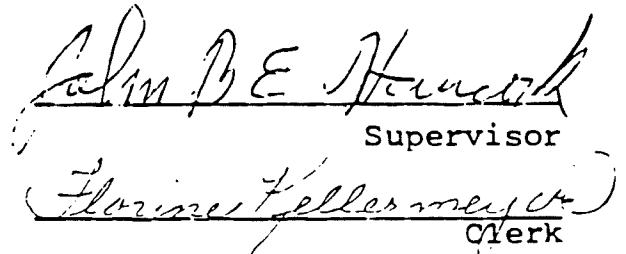 John B E Hancock
Supervisor
Florine Kellermeyer
Clerk